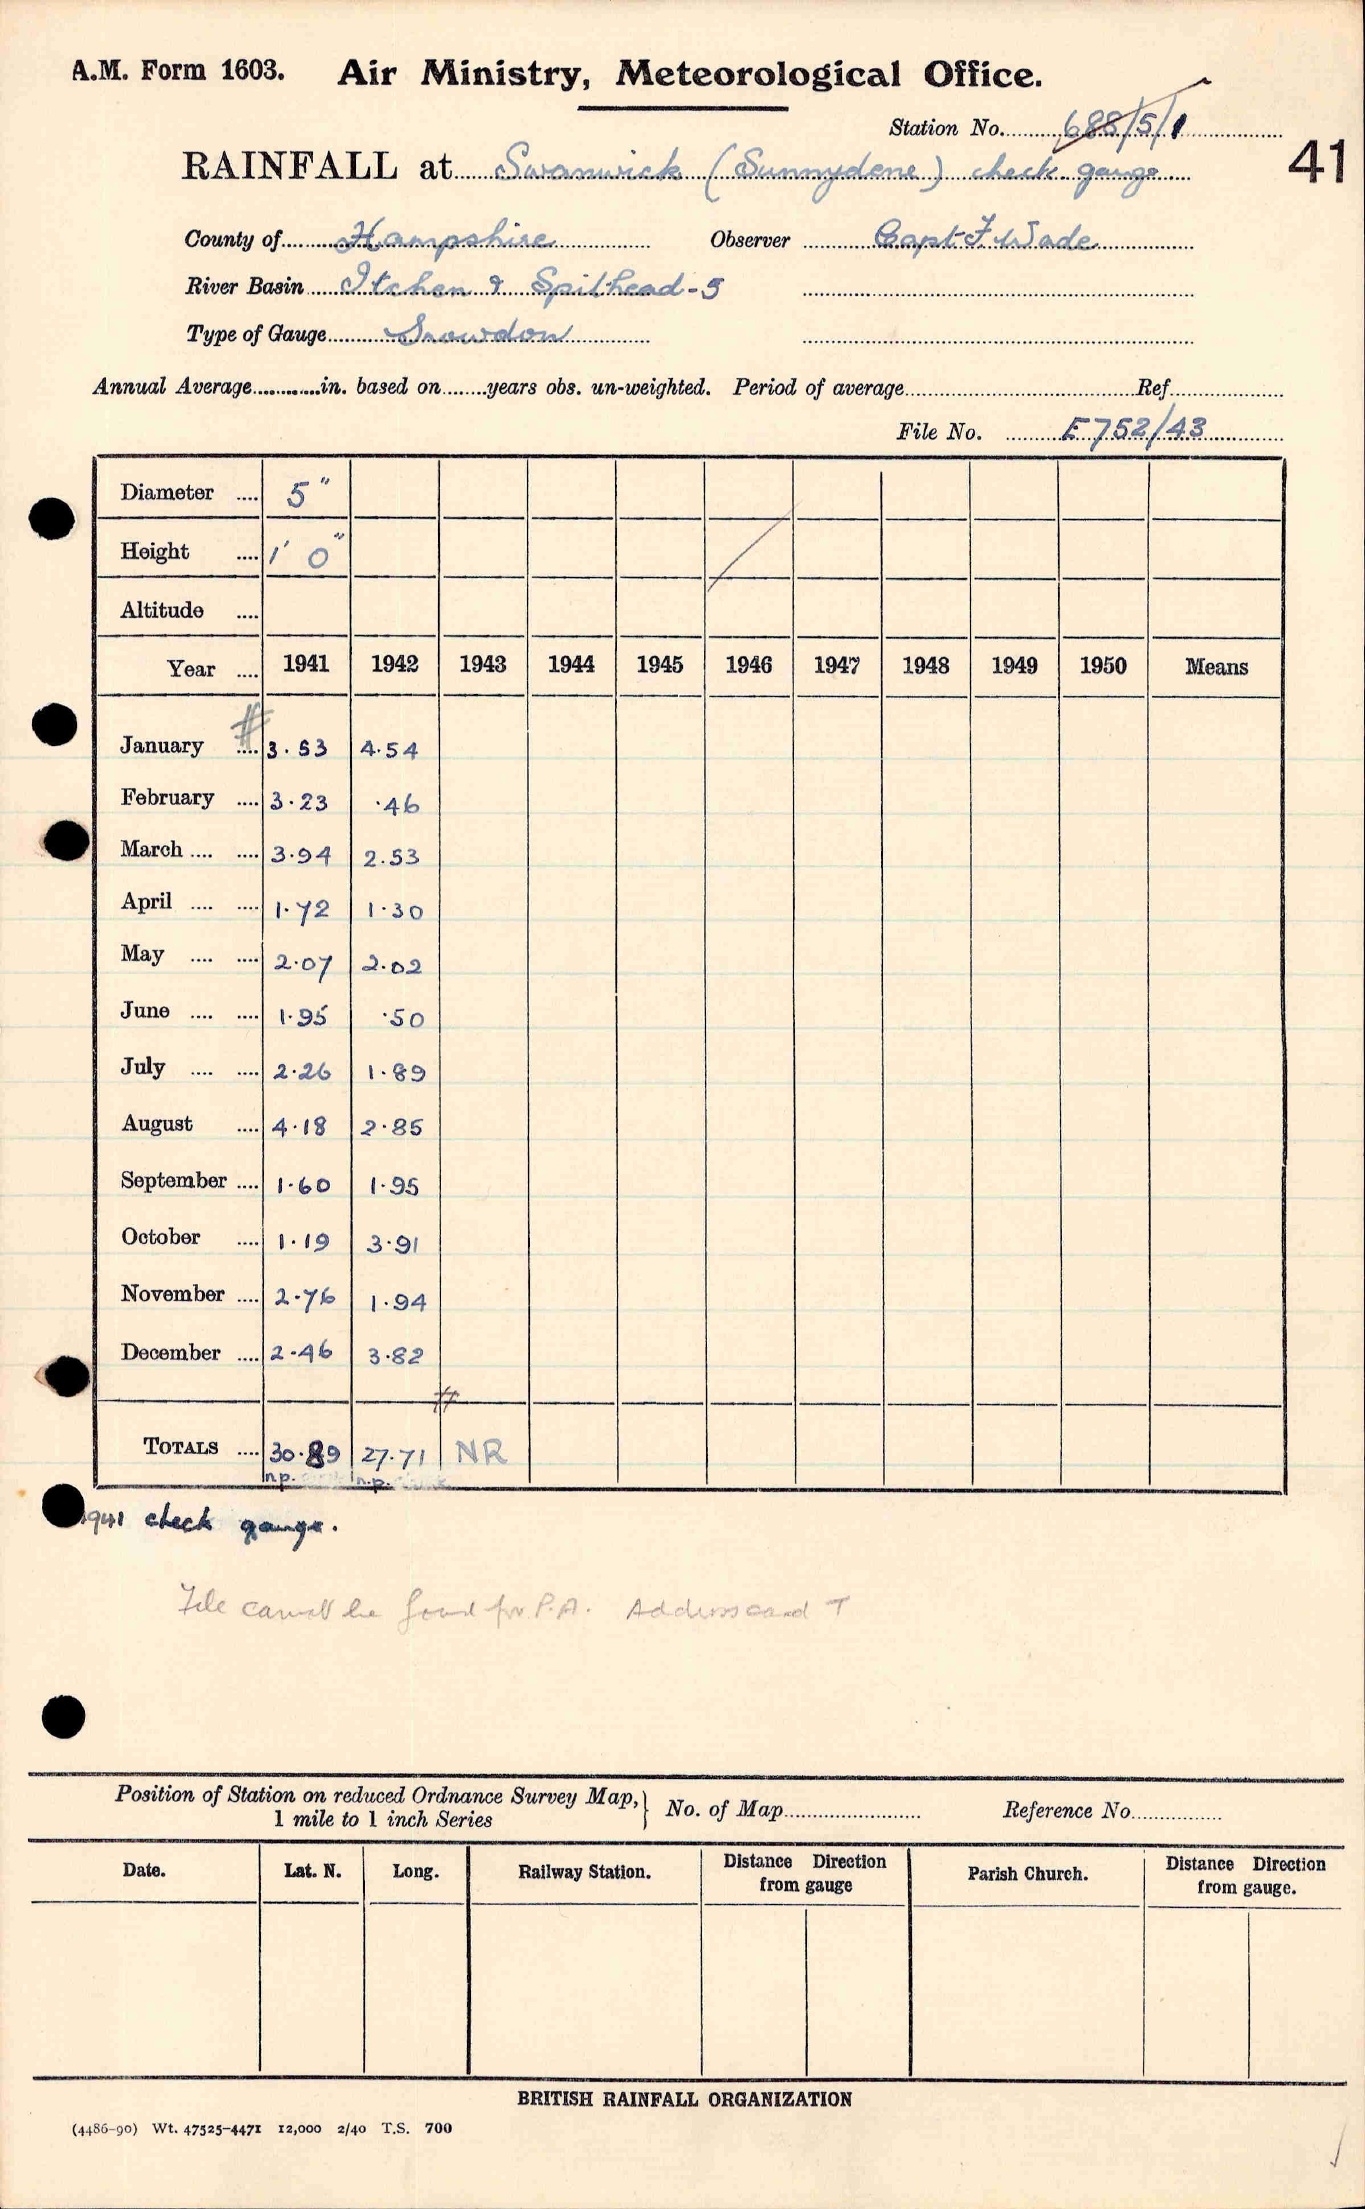 A.M. Form 1603. Air Ministry, Meteorological Office.
Station No. 688/5/1
41
RAINFALL at Swanwick (Sunnydene) check gauge
County of Hampshire Observer Capt F Wade
River Basin Itchen & Spithead-5
Type of Gauge Snowdon
Annual Average............in. based on........years obs. un-weighted. Period of average............Ref............
File No. E752/43
Diameter .... 5"
Height .... 1' 0"
Altitude ....
Year .... 1941 1942 1943 1944 1945 1946 1947 1948 1949 1950 Means
January .... 3.53 4.54
February .... 3.23 .46
March .... .... 3.94 2.53
April .... .... 1.72 1.30
May .... .... 2.07 2.02
June .... .... 1.95 .50
July .... .... 2.26 1.89
August .... 4.18 2.85
September .... 1.60 1.95
October .... 1.19 3.91
November .... 2.76 1.94
December .... 2.46 3.82
TOTALS .... 30.89 27.71 NR
n.p. n.p.
1941 check gauge.
File cannot be found for P.A. Address card T
Position of Station on reduced Ordnance Survey Map,} No. of Map............ Reference No............
1 mile to 1 inch Series
Date. Lat. N. Long. Railway Station. Distance Direction from gauge Parish Church. Distance Direction from gauge.
BRITISH RAINFALL ORGANIZATION
(4486-90) Wt. 47525-4471 12,000 2/40 T.S. 700